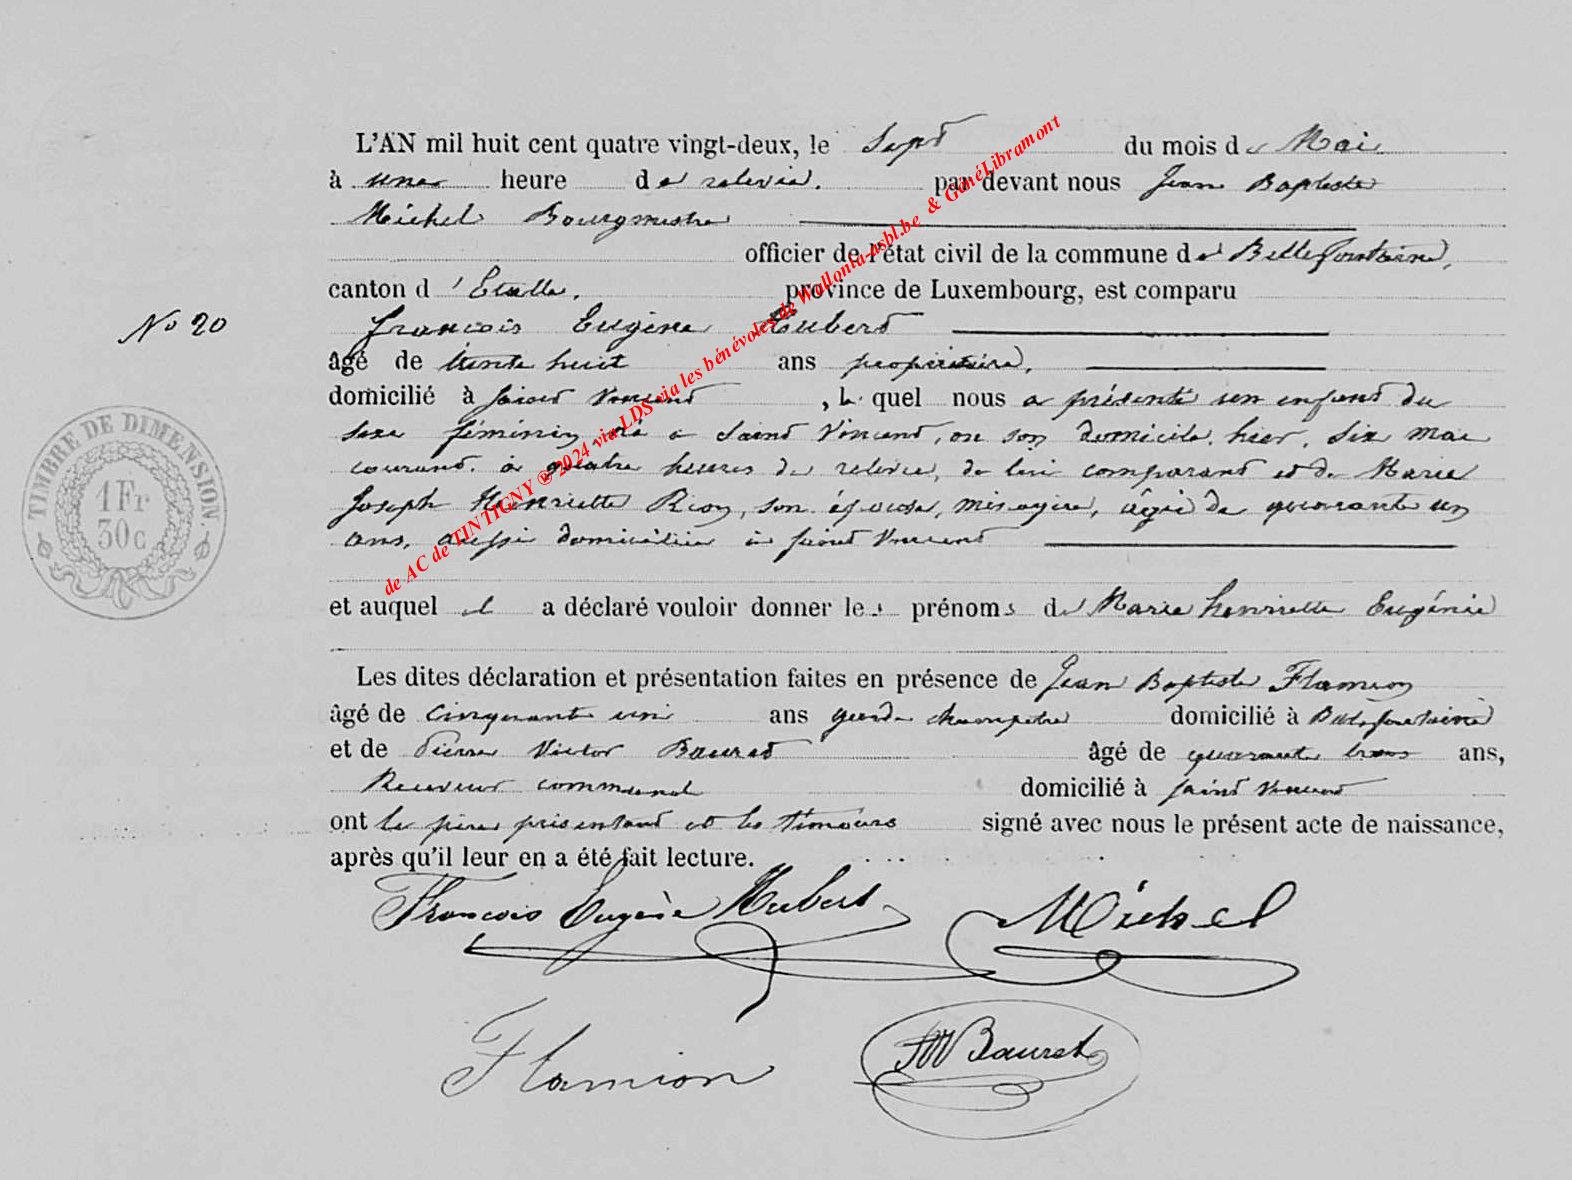 L'AN mil huit cent quatre vingt-deux, le Sept du mois de Mai
à une heure de relevée. par devant nous Jean Baptiste
Michel Bourgmestre
officier de l'état civil de la commune de Bellefontaine,
canton d'Etalle, province de Luxembourg, est comparu
No 20
François Eugène Hubert
âgé de trente huit ans propriétaire,
domicilié à Saint Vincent, le quel nous a présenté un enfant du
sexe féminin né à Saint Vincent, en son domicile, hier, six mai
courant, à quatre heures de relevée, de lui comparant et de Marie
Joseph Henriette Rion, son épouse, ménagère, âgée de quarante un
ans, aussi domiciliée à Saint Vincent
et auquel il a déclaré vouloir donner les prénoms de Marie Henriette Eugénie
Les dites déclaration et présentation faites en présence de Jean Baptiste Flamion
âgé de cinquante un ans garde champêtre domicilié à Bellefontaine
et de Pierre Victor Bauret âgé de quarante trois ans,
Receveur communal domicilié à Saint Vincent
ont le père présentant et les témoins signé avec nous le présent acte de naissance,
après qu'il leur en a été fait lecture.
François Eugène Hubert Michel
Flamion Bauret
TIMBRE DE DIMENSION.
1 Fr
30 C
de AC de TINTIGNY @ 2024 via LDS via les bénévoles de Wallonia-asbl.be & GénéLibramont